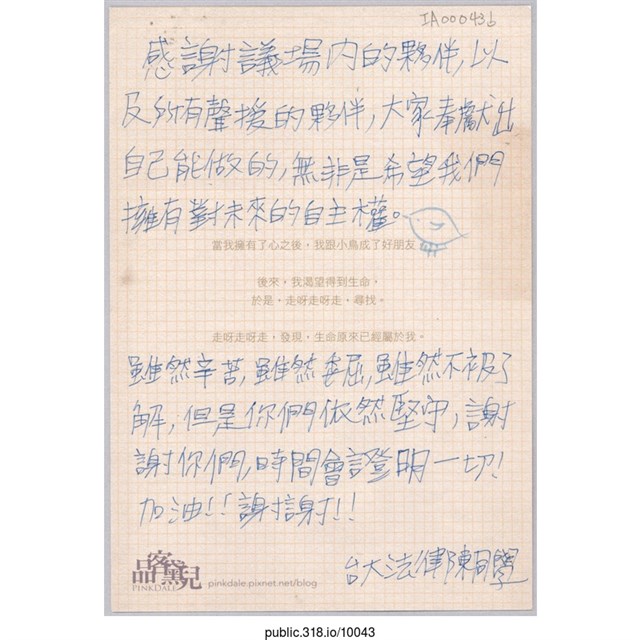 IA000436
感謝議場內的夥伴,以
及所有聲援的夥伴,大家奉獻出
自己能做的,無非是希望我們
擁有對未來的自主權。
當我擁有了心之後,我跟小鳥成了好朋友
後來,我渴望得到生命。
於是,走呀走呀走,尋找。
走呀走呀走,發現,生命原來已經屬於我。
雖然辛苦,雖然委屈,雖然不被了
解,但是你們依然堅守,謝
謝你們,時間會證明一切!
加油!!謝謝!!
台大法律陳同學
品客黛兒
PINKDALE
pinkdale.pixnet.net/blog
public.318.io/10043